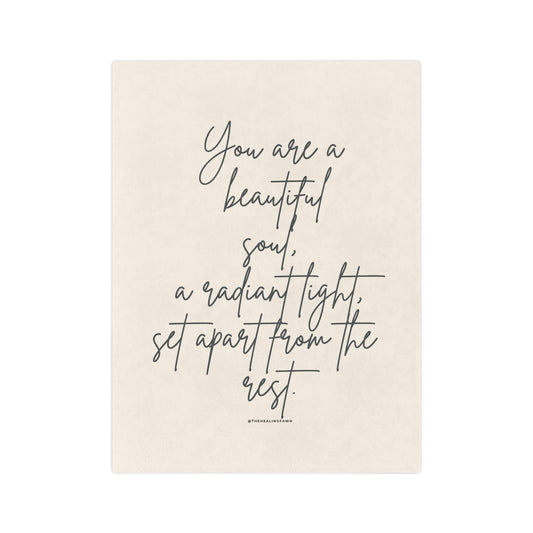 You are a
beautiful
soul,
a radiant light,
set apart from the
rest.
@THEHEALINGFAWN